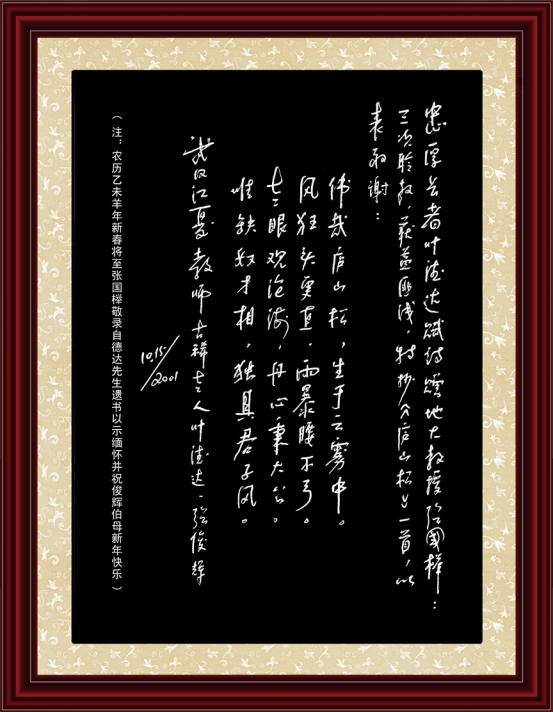 忠厚长者叶德达赋诗颂地大教授张国榉：
三次聆教，获益匪浅，特抄《庐山松》一首，以
表敬谢：
伟哉庐山松，生于云雾中。
风狂头更直，雨暴腰不弓。
慧眼观沧海，丹心秉大公。
唯缺奴才相，独具君子风。
武汉江夏教师 古稀老人叶德达—张俊辉
10/15/2001
（注：农历乙未羊年新春将至张国榉敬录自德达先生遗书以示缅怀并祝俊辉伯母新年快乐）